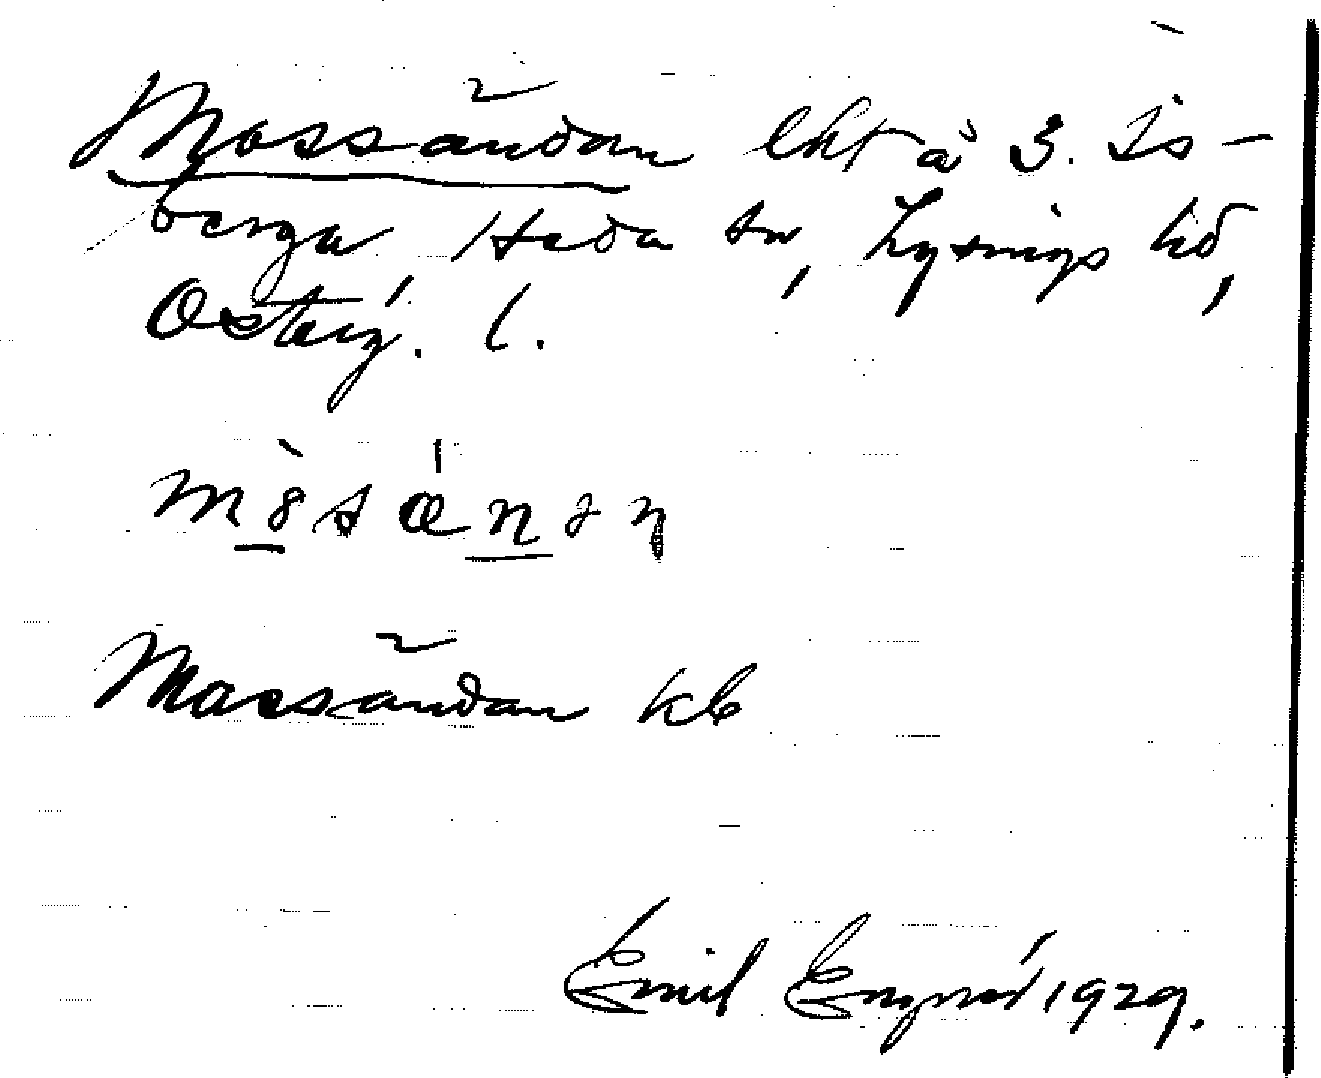 Mossändan lht å 3. Is-
berga, Heda sn, Lysings hd,
Östergötl. l.
Mossändan kb
Emil Engner 1929.